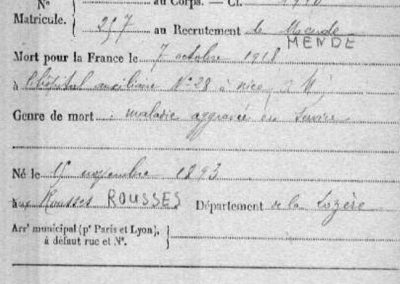 N° au Corps. — Cl. 1910
Matricule. 257 au Recrutement de Mende
MENDE
Mort pour la France le 7 octobre 1918
à l'hôpital auxiliaire N° 28 à Nice
Genre de mort : maladie aggravée en service
Né le novembre 1893
aux Rousses ROUSSES Département de la Lozère
Arr' municipal (p' Paris et Lyon),
à défaut rue et N°.